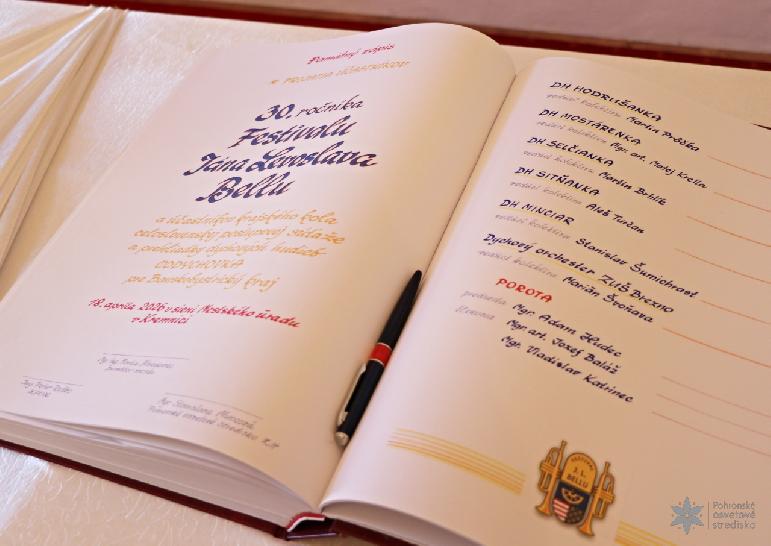 Pamätný zápis
z prijatia účastníkov
30. ročníka
Festivalu
Jána Levoslava
Bellu
a účastníkov krajského kola
celoslovenskej postupovej súťaže
a prehliadky dychových hudieb
DYCHOVKA
pre Banskobystrický kraj
18. apríla 2026 v sieni Mestského úradu
v Kremnici
DH HODRUŠANKA
vedúci kolektívu Martin Prôčka
DH MOSTÁRENKA
vedúci kolektívu Mgr. art. Matej Krella
DH SELČIANKA
vedúci kolektívu Martin Bohlík
DH SITŇANKA
vedúci kolektívu Aleš Turčan
DH MINCIAR
vedúci kolektívu Stanislav Šumichrast
Dychový orchester ZUŠ Brezno
vedúci kolektívu Marián Švoňava
POROTA
predseda Mgr. Adam Hudec
členovia Mgr. art. Jozef Baláž
Mgr. Vladislav Katrinec
FESTIVAL
J. L.
BELLU
Pohronské
osvetové
stredisko